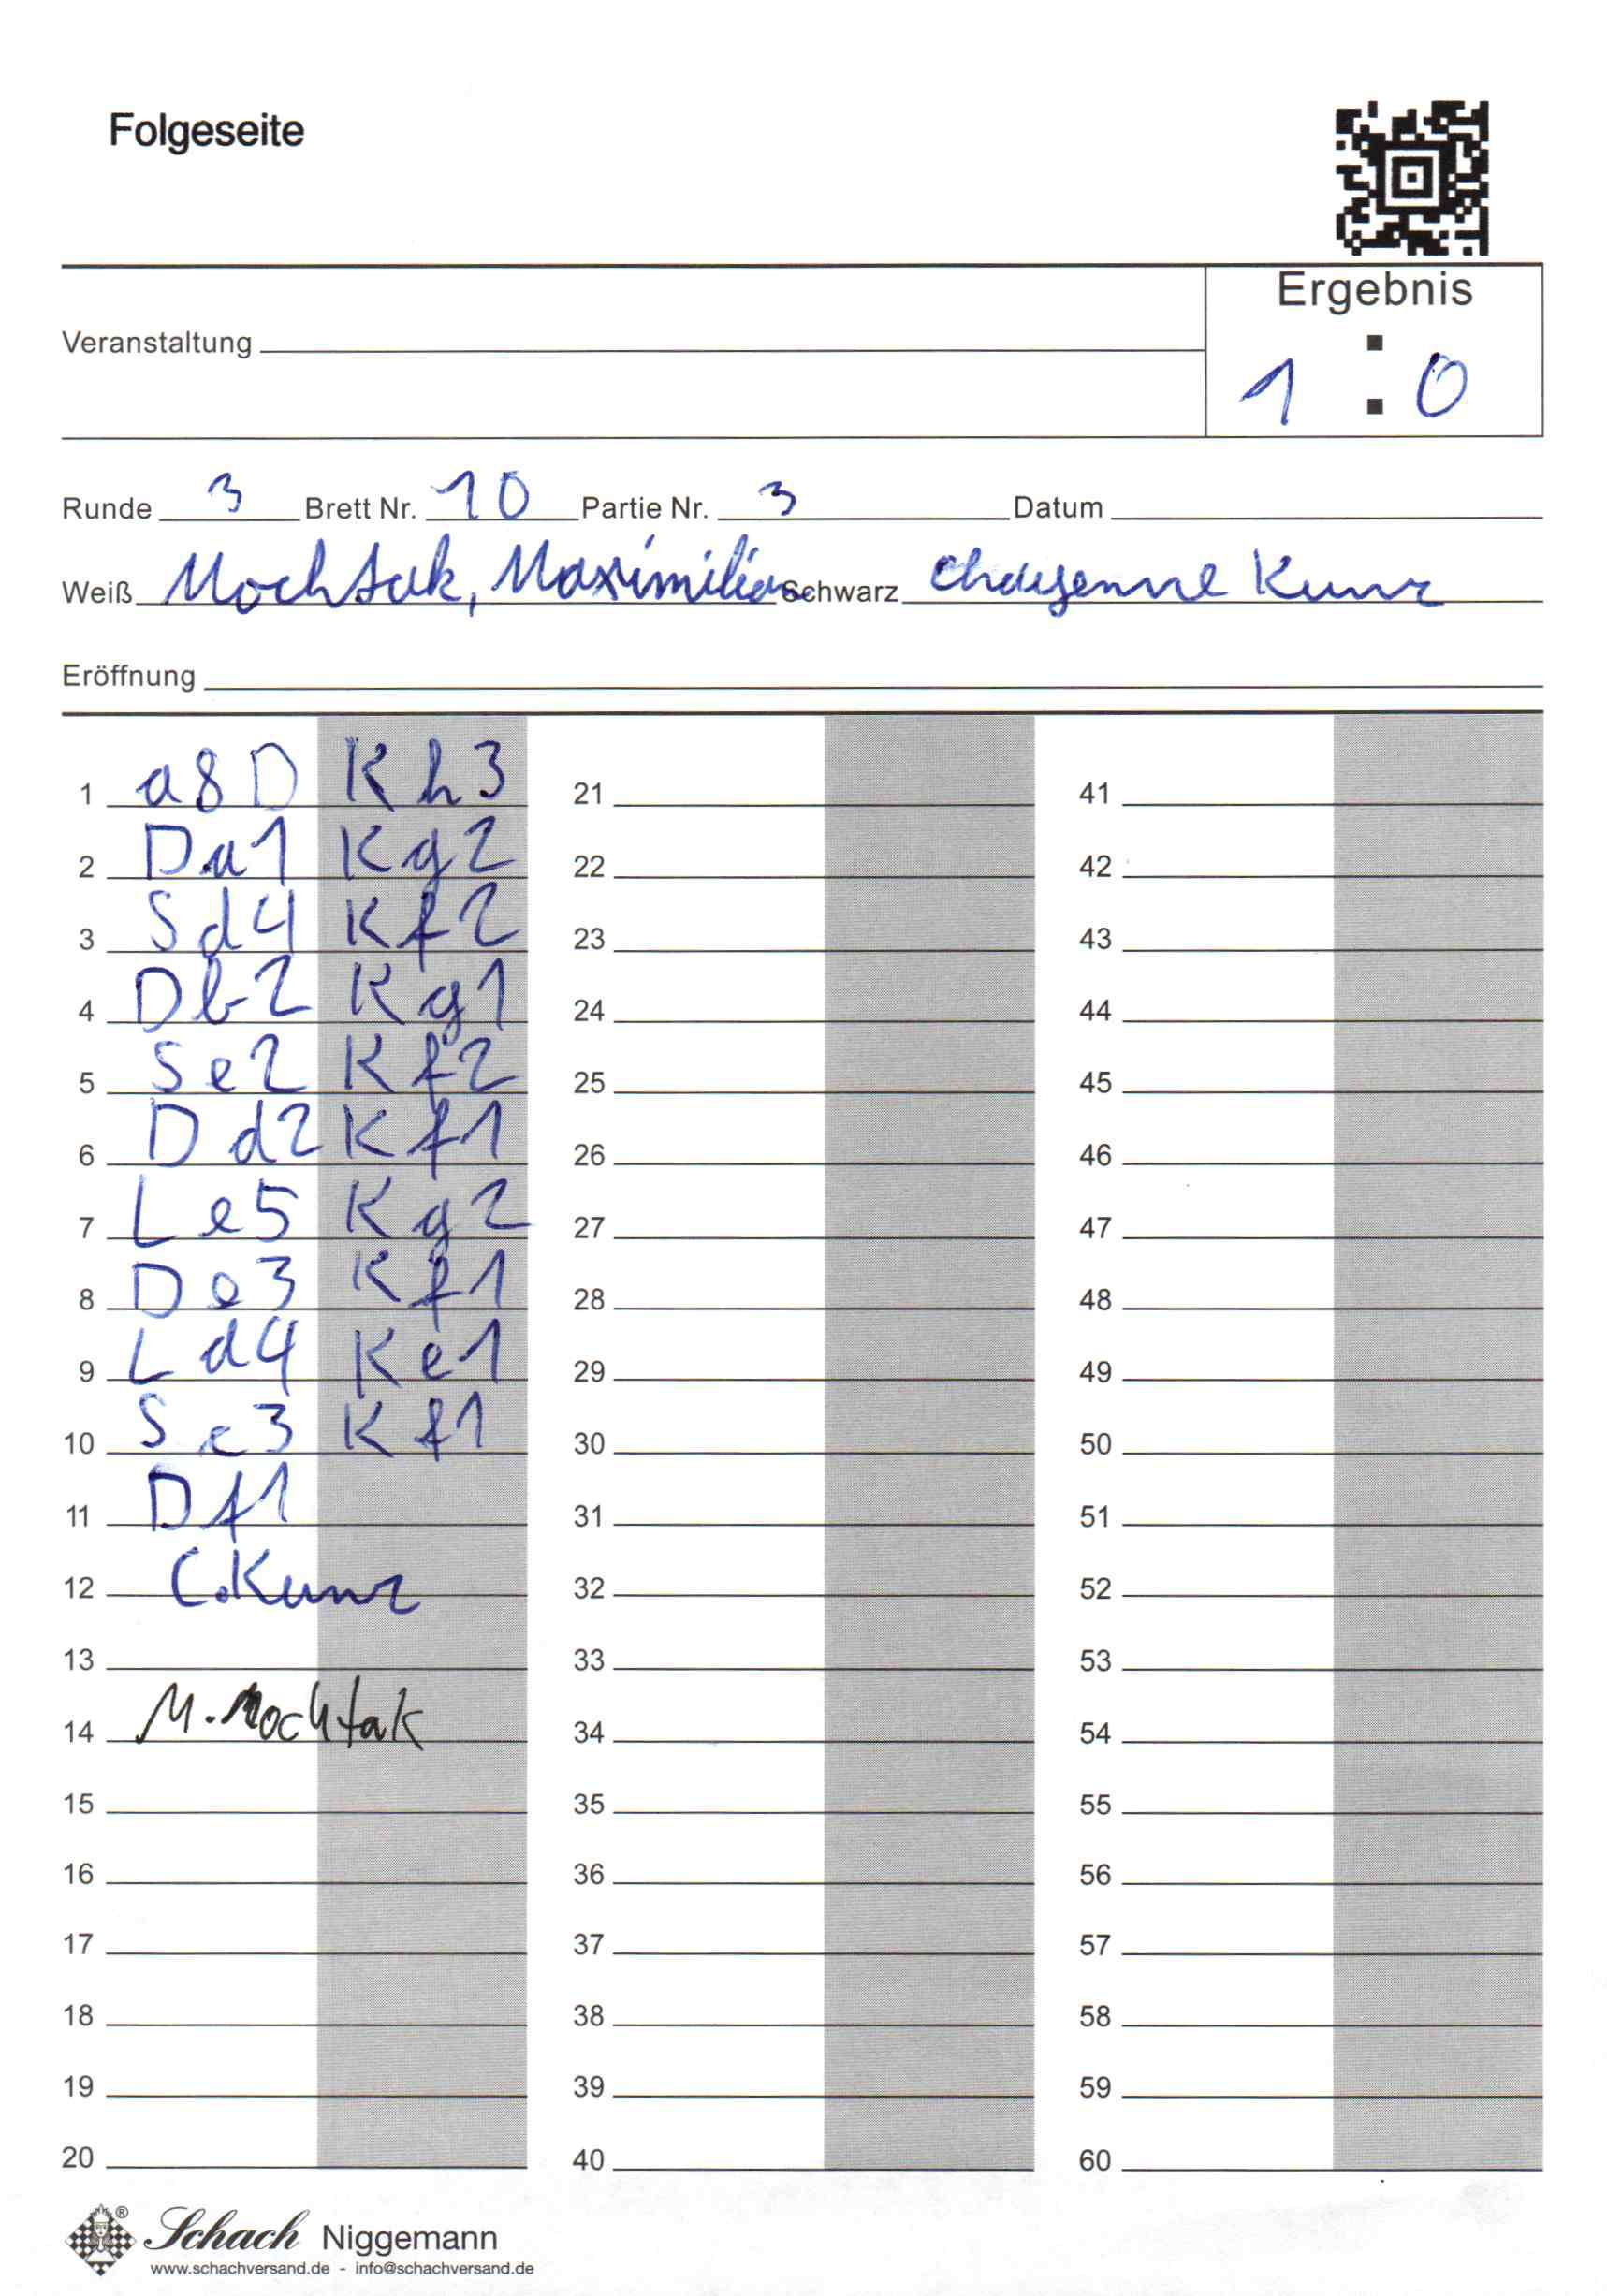 Folgeseite
Ergebnis
Veranstaltung
1 : 0
Runde 3 Brett Nr. 10 Partie Nr. 3 Datum
Weiß Mochtak, Maximilian Schwarz Chayenne Kunz
Eröffnung
1 a8D Kh3 21 41
2 Da1 Kg2 22 42
3 Sd4 Kf2 23 43
4 Db2 Kg1 24 44
5 Se2 Kf2 25 45
6 Dd2 Kf1 26 46
7 Le5 Kg2 27 47
8 De3 Kf1 28 48
9 Ld4 Ke1 29 49
10 Sc3 Kf1 30 50
11 Df1 31 51
12 C.Kunz 32 52
13 33 53
14 M.Mochtak 34 54
15 35 55
16 36 56
17 37 57
18 38 58
19 39 59
20 40 60
® Schach Niggemann
www.schachversand.de - info@schachversand.de